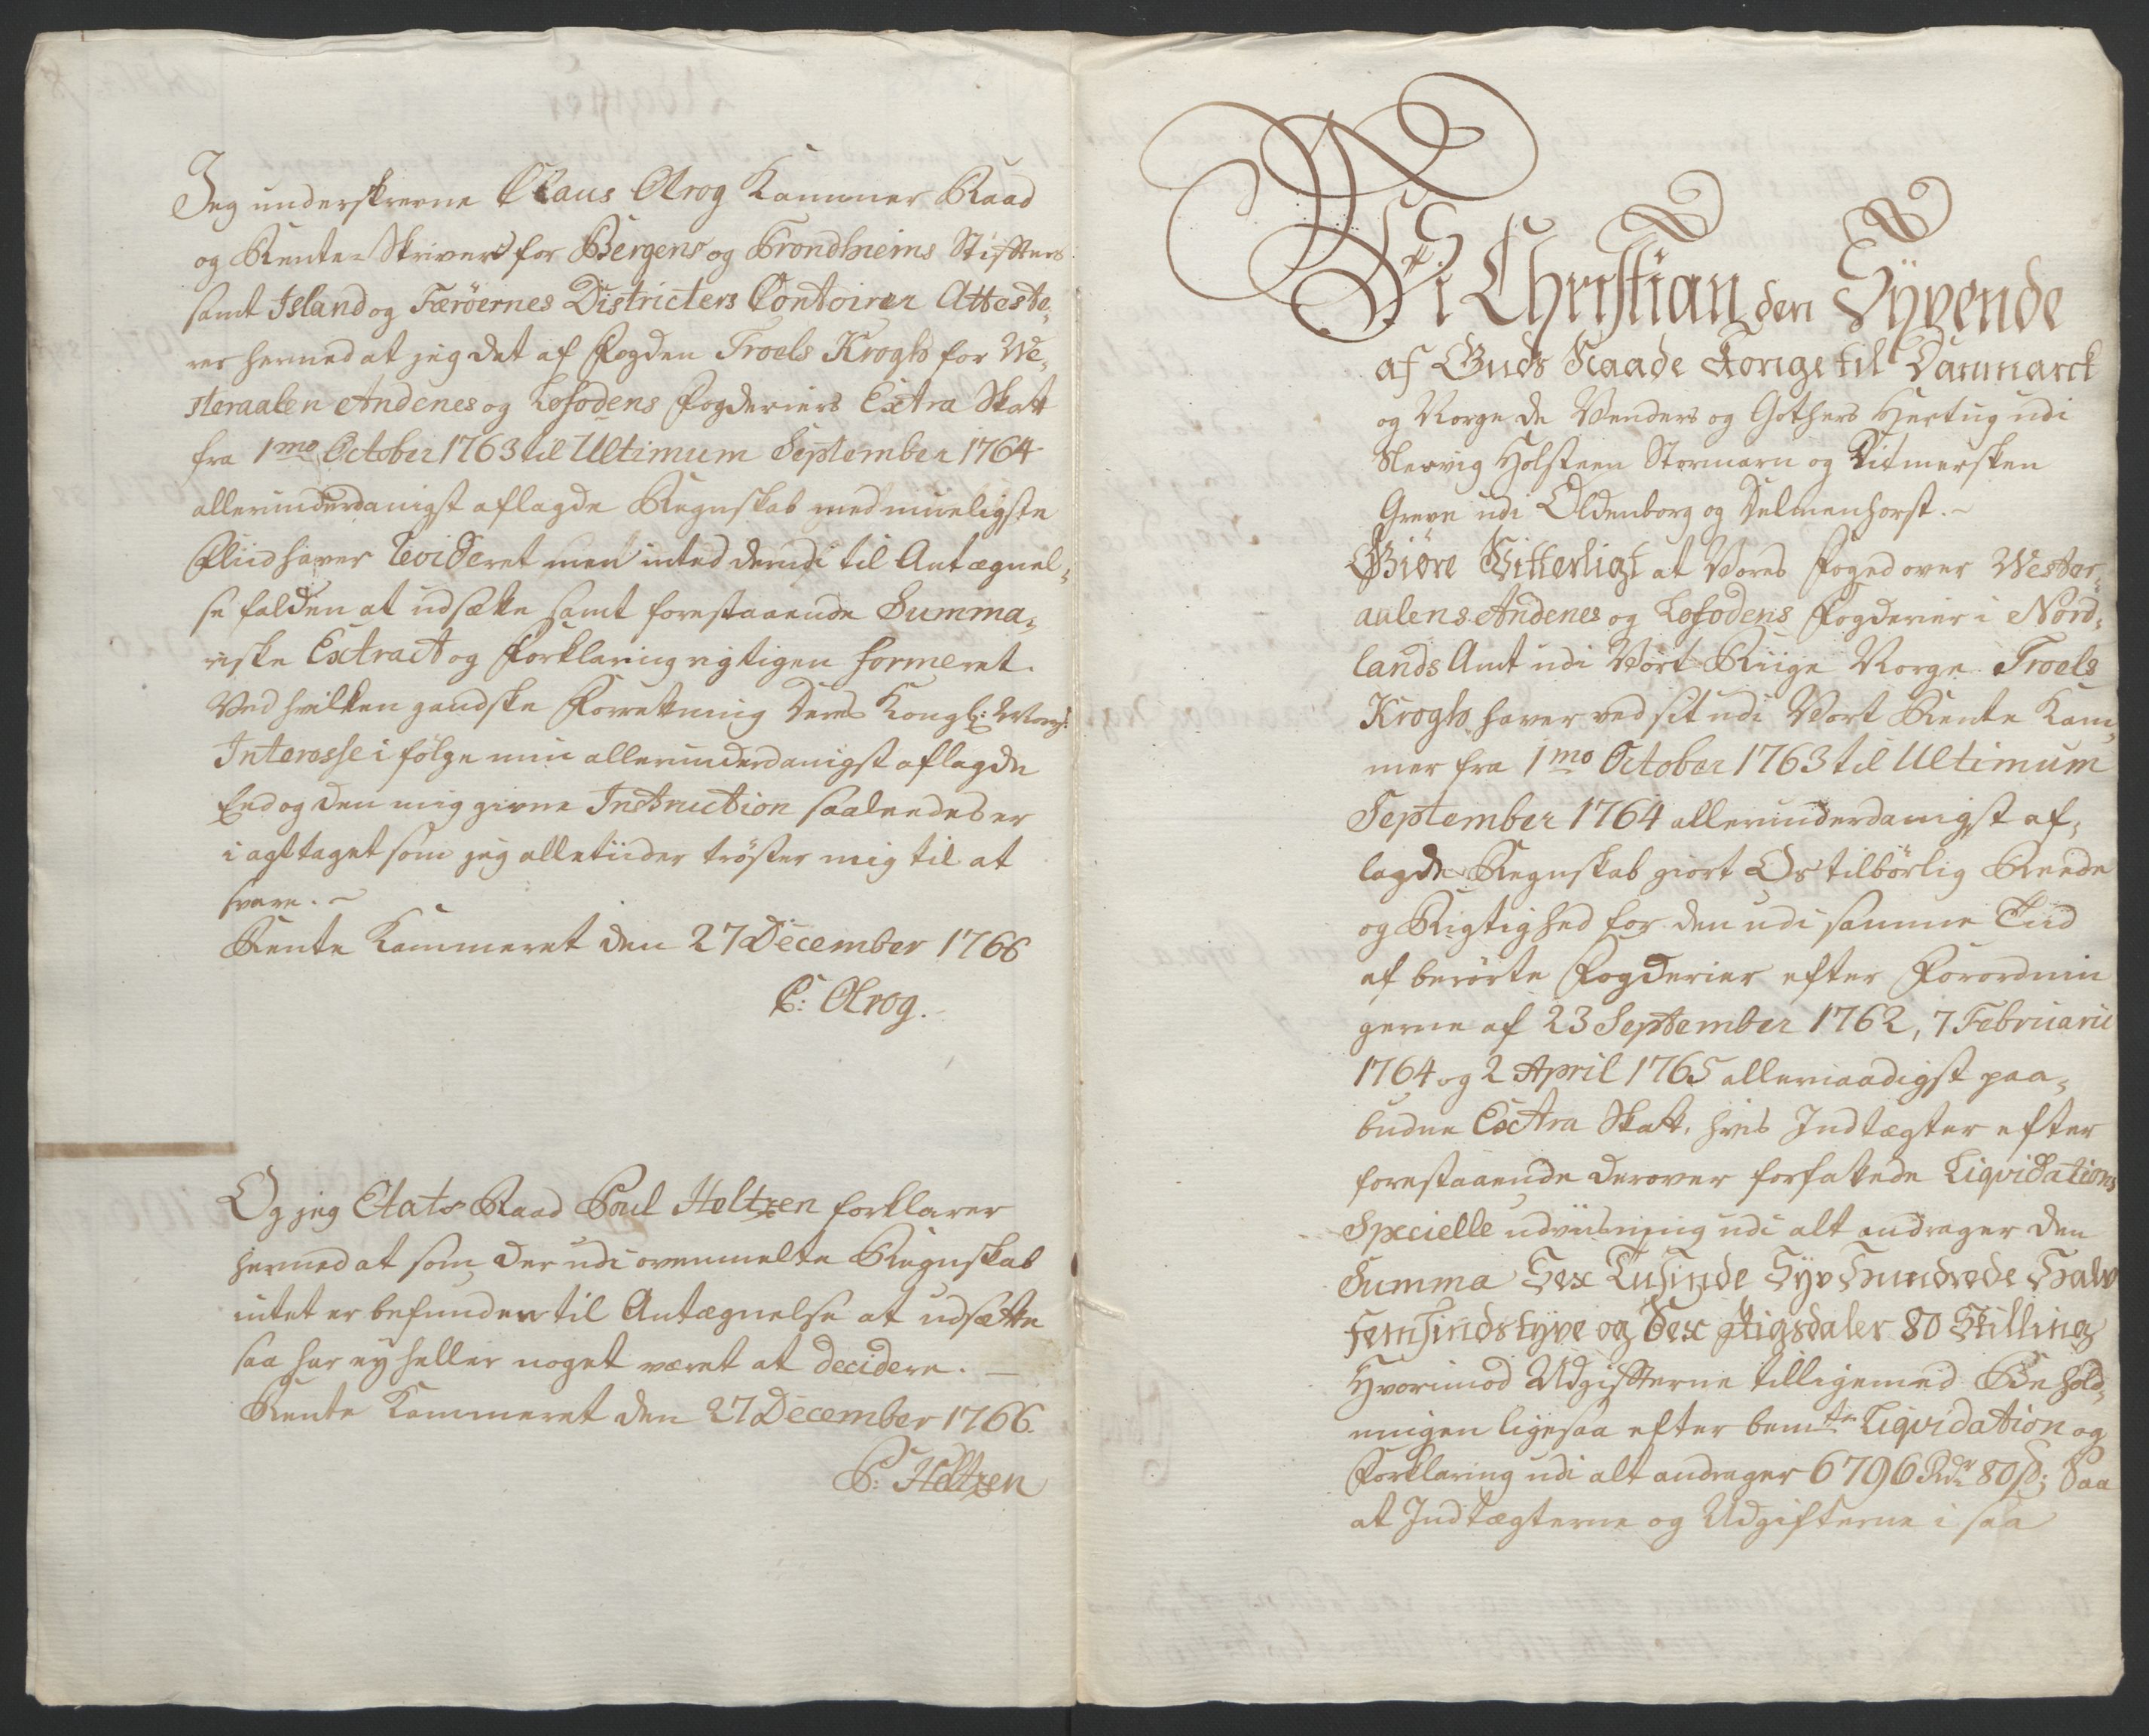 Jeg underskrevne Claus Olrog Kammer Raad
og Rente-Skriver for Bergens og Trondhiems Stifters
samt Island og Færöernes Districters Contoirer Atteste,
rer hermed at jeg det af Fogden Troels Krogh for We,
steraalen Andenes og Lofodens Fogderiers Extra Skatt
fra 1mo October 1763 til Ultimum September 1764
allerunderdanigst aflagde Regnskab med mueligste
Fliid haver Revideret men intet derudi til Antægnel,
se falden at udsætte samt forestaaende Summa,
riske Extract og Forklaring rigtigen formeret.
Ved hvilken gandske Forretning Deres Kongl: May:
Interesse i følge min allerunderdanigst aflagde
Eed og den mig givne Instruction saaledes er
i agttaget som jeg alletiider trøster mig til at
svare.
Rente Kammeret den 27 December 1766
C: Olrog.
Og jeg Etats Raad Poul Heltzen forklarer
hermed at som der udi ovenmelte Regnskab
intet er befunden til Antægnelse at udsætte
saa har ey heller noget været at decidere.
Rente Kammeret den 27 December 1766.
P: Heltzen
Wi Christian den Syvende
af Guds Naade Konge til Danmarck
og Norge de Venders og Gothers Hertug udi
Slesvig Holsteen Stormarn og Ditmersken
Greve udi Oldenborg og Delmenhorst.
Giøre Vitterligt at Vores Foged over Wester,
aalens Andenes og Lofodens Fogderier i Nord,
lands Amt udi Vort Riige Norge Troels
Krogh haver ved sit udi Vort Rente Kam,
mer fra 1mo October 1763 til Ultimum
September 1764 allerunderdanigst af,
lagde Regnskab giort Os tilbørlig Reede
og Rigtighed for den udi samme Tiid
af berørte Fogderier efter Forordnin
gerne af 23 September 1762, 7 Februarii
1764 og 2 April 1765 allernaadigst paa,
budne Extra Skatt, hvis Indtægter efter
forestaaende derover forfattede Liqvidations
Specielle udviisning udi alt andrager den
Summa Sex Tusinde Syv Hundrede Halv
femsindstyve og Sex Rigsdaler 80 Skilling
Hvorimod Udgifterne tilligemed Behold,
ningen ligesaa efter bemte Liqvidation og
Forklaring udi alt andrager 6796 Rdr 80 s; Saa
at Indtægterne og Udgifterne i saa